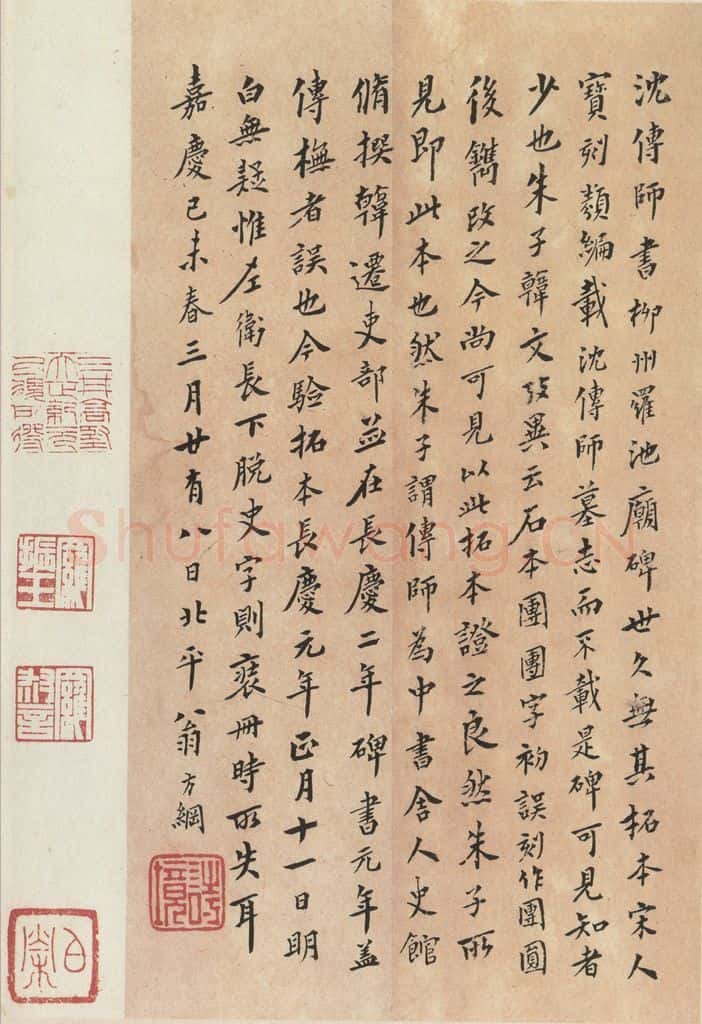 沈傳師書柳州羅池廟碑世久無其拓本宋人
寶刻類編載沈傳師墓志而不載是碑可見知者
少也朱子韓文攷異云石本團團字初誤刻作團圓
後鐫改之今尚可見以此拓本證之良然朱子所
見即此本也然朱子謂傳師為中書舍人史館
脩撰韓遷吏部並在長慶二年碑書元年蓋
傳橅者誤也今驗拓本長慶元年正月十一日明
白無疑惟左衛長下脫史字則裝冊時所失耳
嘉慶己未春三月廿有八日北平翁方綱
詩境
Shufawang.CN